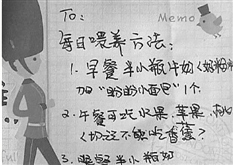 To:
Memo
每日喂养方法:
1. 早餐半小瓶牛奶(奶粉
加"奶奶小面包"1个
2. 午餐可吃水果,苹果,
(切注不能吃香蕉?
3. 晚餐半小瓶奶